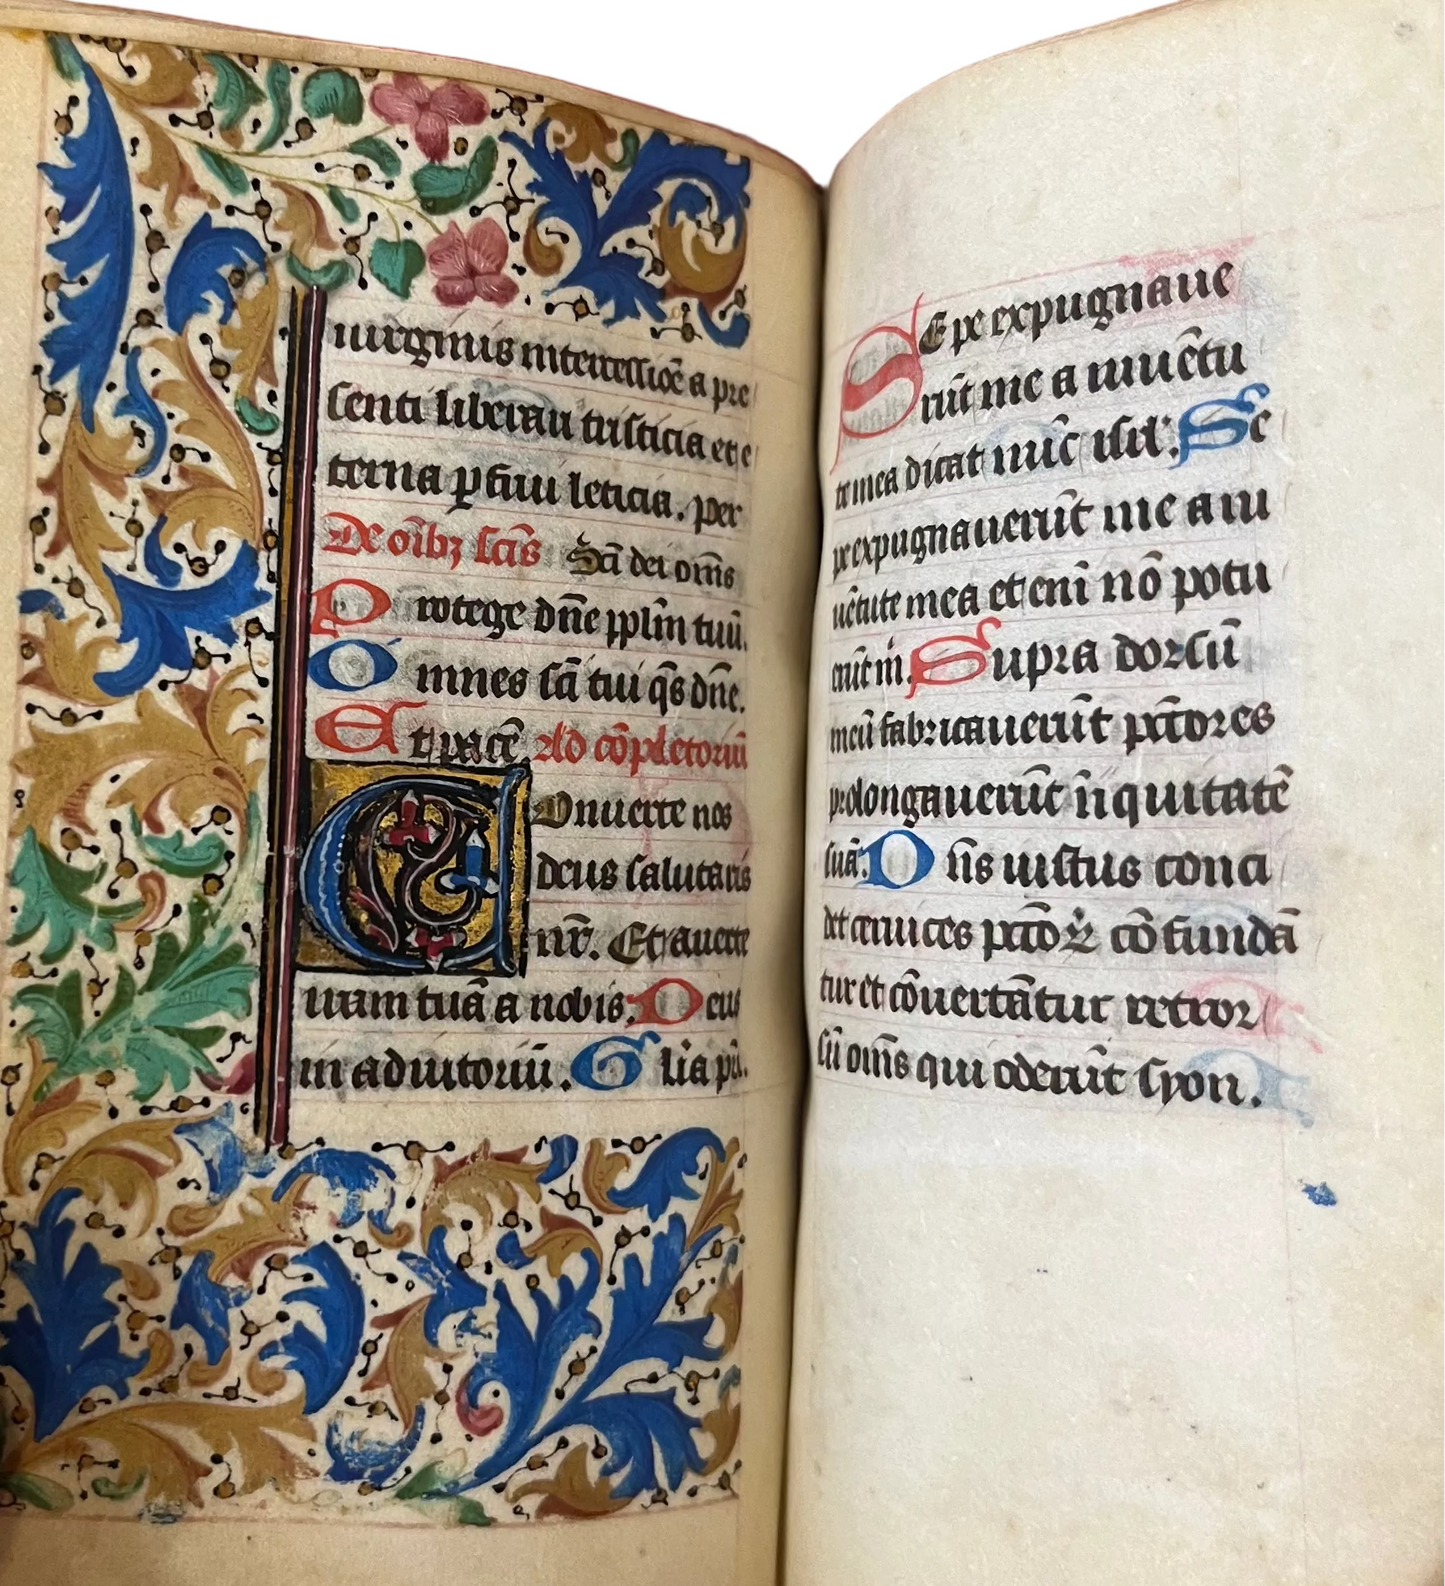 uirginis intercessiõe a pre
senti liberari tristicia et e
terna ꝑfrui leticia. per
De oĩbꝫ scĩs Sc̃i dei om̃s
Protege dñe pplm̃ tuũ.
Omnes sc̃i tui q̃s dñe.
Et pacẽ. Ad cõpletoriũ
COnuerte nos
deus salutaris
nr̃. Et auerte
iram tuã a nobis. Deus
in adiutoriũ. Glia pr̃i.
SEpe expugnaue
rũt me a iuuẽtu
te mea dicat nũc isrl̃: Se
pe expugnauerũt me a iu
uẽtute mea et enĩ nõ potu
erũt m̃. Supra dorsũ
meũ fabricauerũt pc̃tores
prolongauerũt ĩiquitatẽ
suã: Dñs iustus conci
det ceruices pc̃toꝝ cõfundã
tur et cõuertãtur retror
sũ om̃s qui oderũt syon.